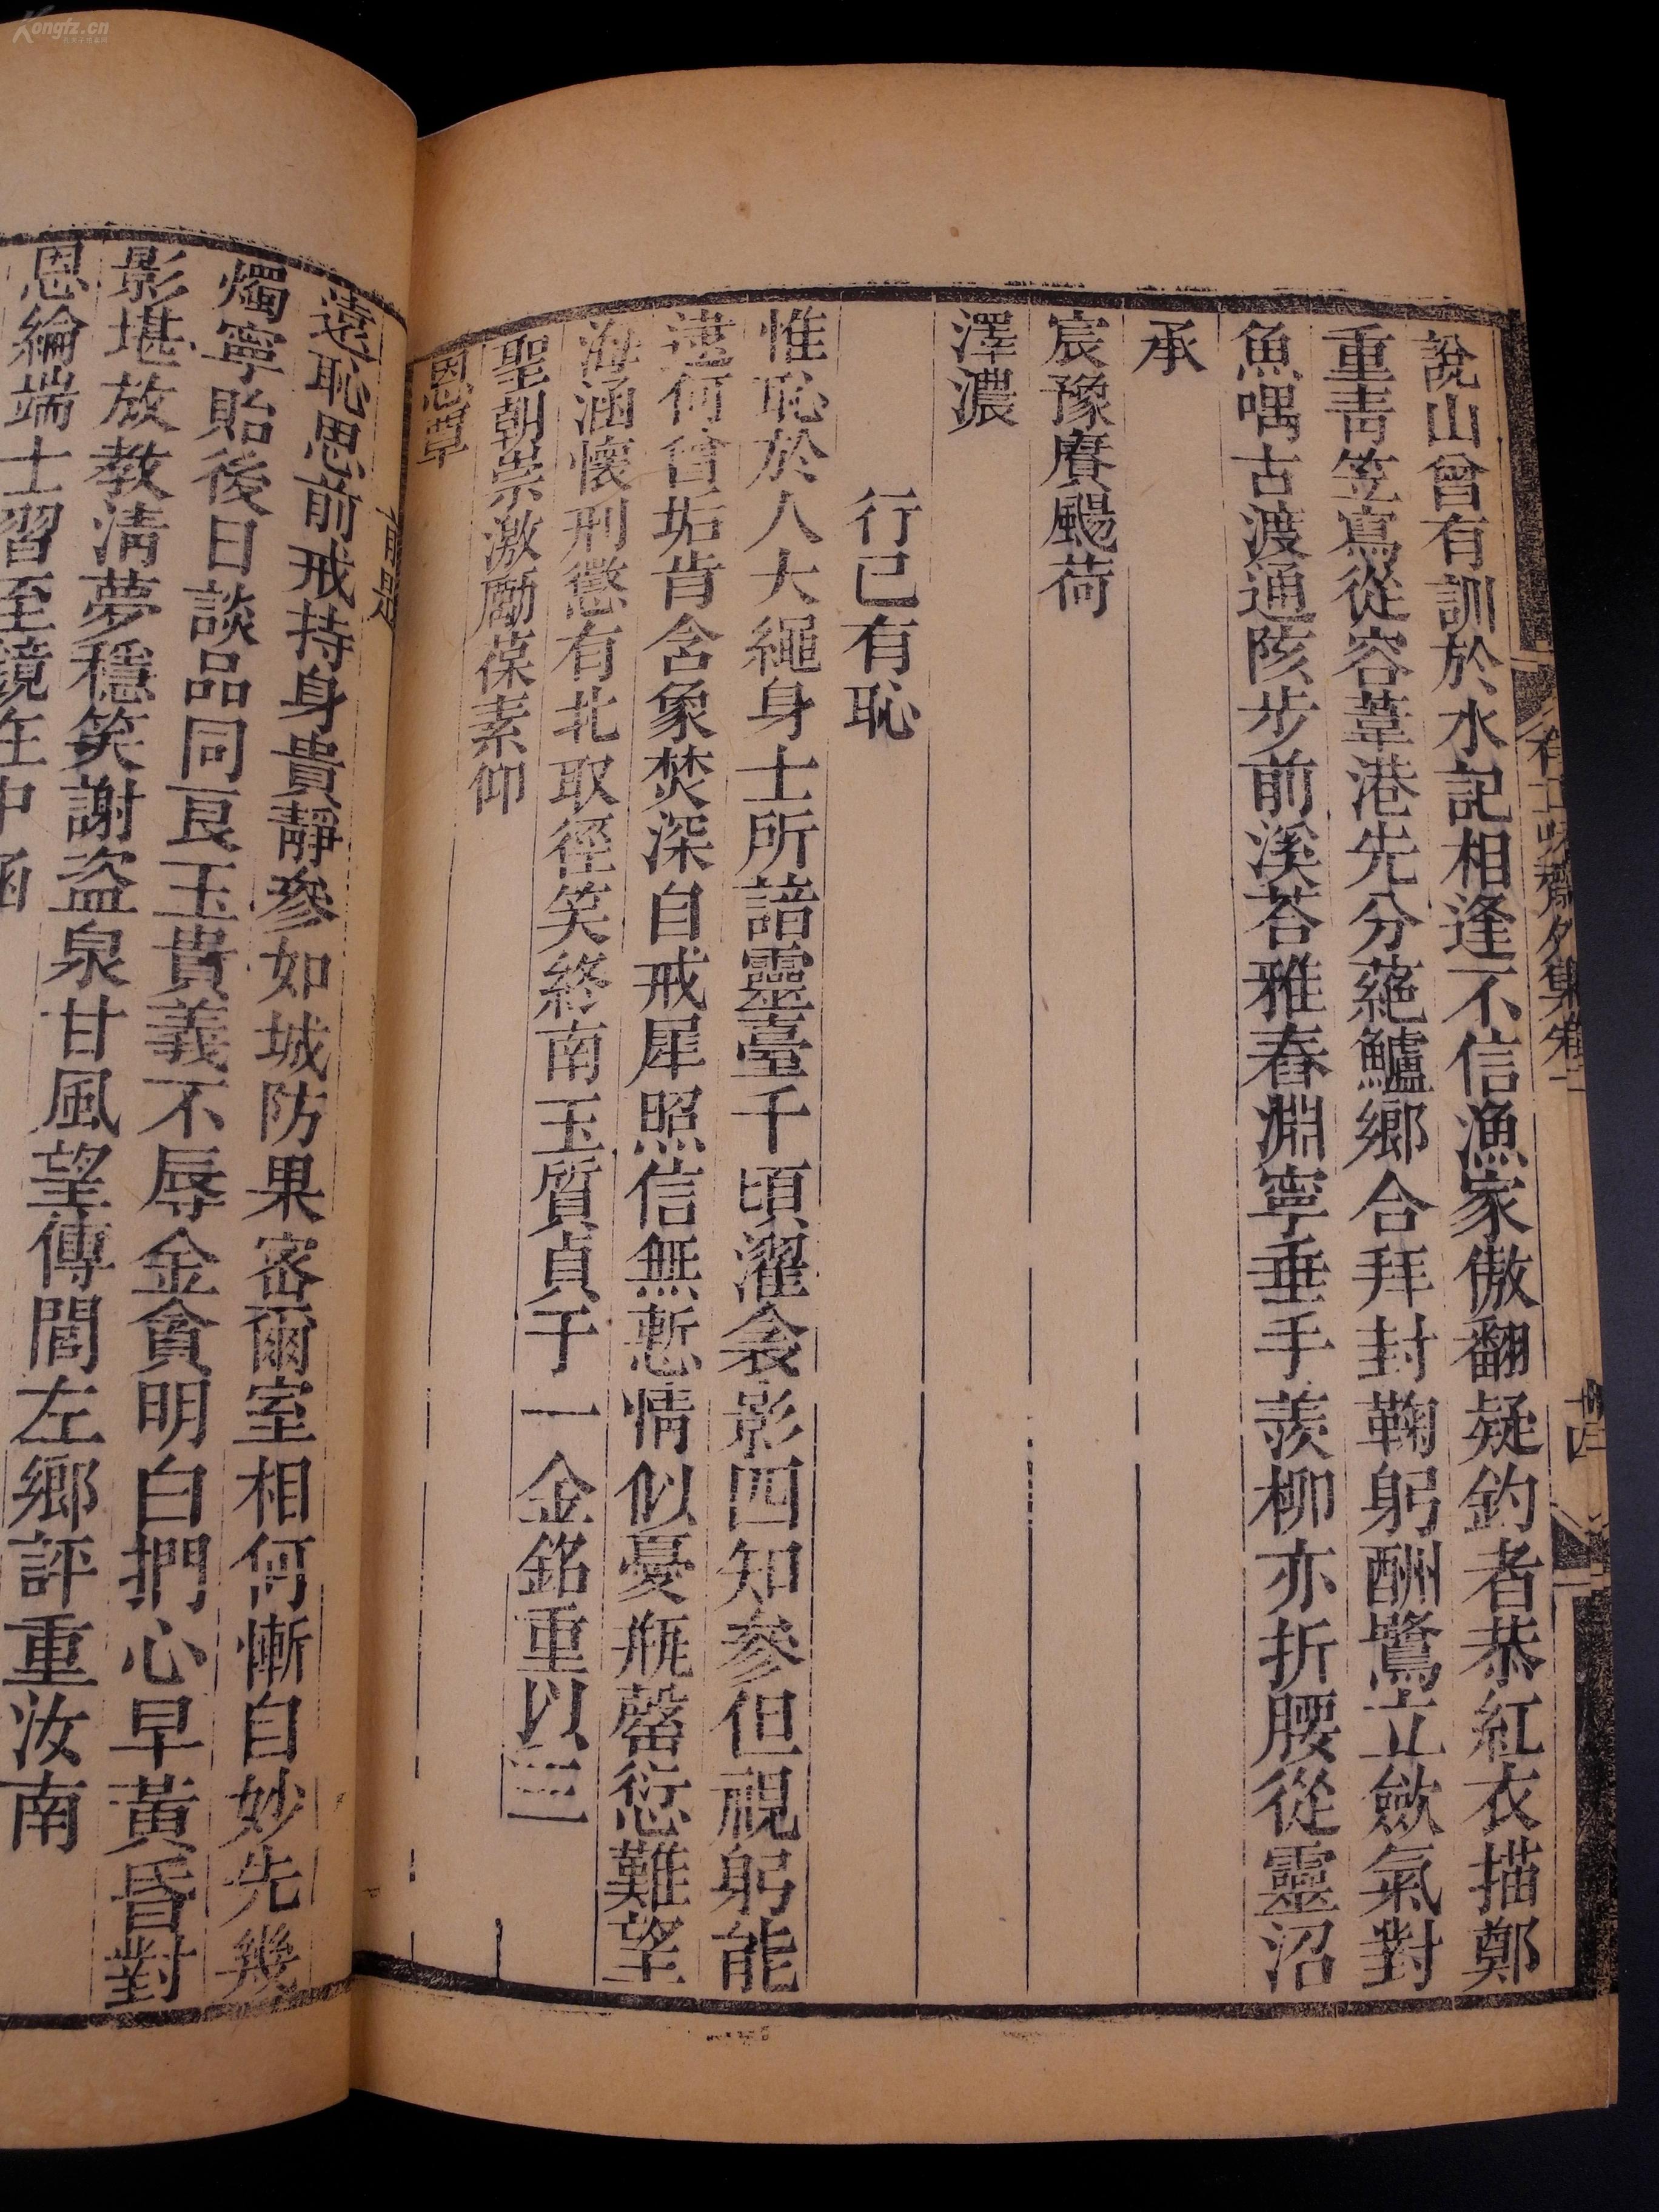 說山曾有訓於水記相逢不信漁家傲翻疑釣者恭紅衣描鄭
重靑笠寫從容葦港先分蕝鱸鄉合拜封鞠躬酬鷺立歛氣對
魚喁古渡通陔步前溪荅雅舂淵寧垂手羨柳亦折腰從靈沼
承
宸豫賡颺荷
澤濃
行己有恥
惟恥於人大繩身士所諳靈臺千頃濯衾影四知參但視躬能
逮何曾垢肯含象焚深自戒犀照信無慙情似憂瓶罄愆難望
海涵懷刑懲有北取徑笑終南玉質貞于一金銘重以三
聖朝崇激勵葆素仰
恩覃
遠恥思前戒持身貴靜參如城防果密爾室相何慚自妙先幾
燭寧貽後日談品同艮玉貴義不辱金貪明白捫心早黃昏對
影堪放教淸夢穩笑謝盜泉甘風望傳閭左鄉評重汝南
恩綸端士習至鏡在中函
Kongfz.cn